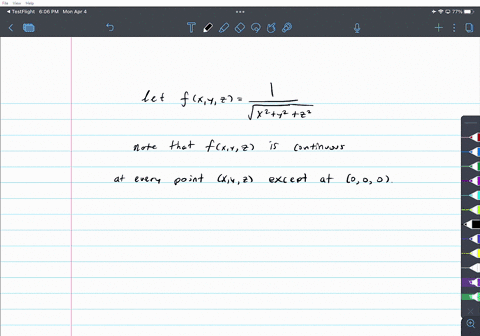 File View Help
◀ TestFlight 6:06 PM Mon Apr 4 77%
let f(x,y,z) = 1 / √x²+y²+z²
note that f(x,y,z) is continuous
at every point (x,y,z) except at (0,0,0).